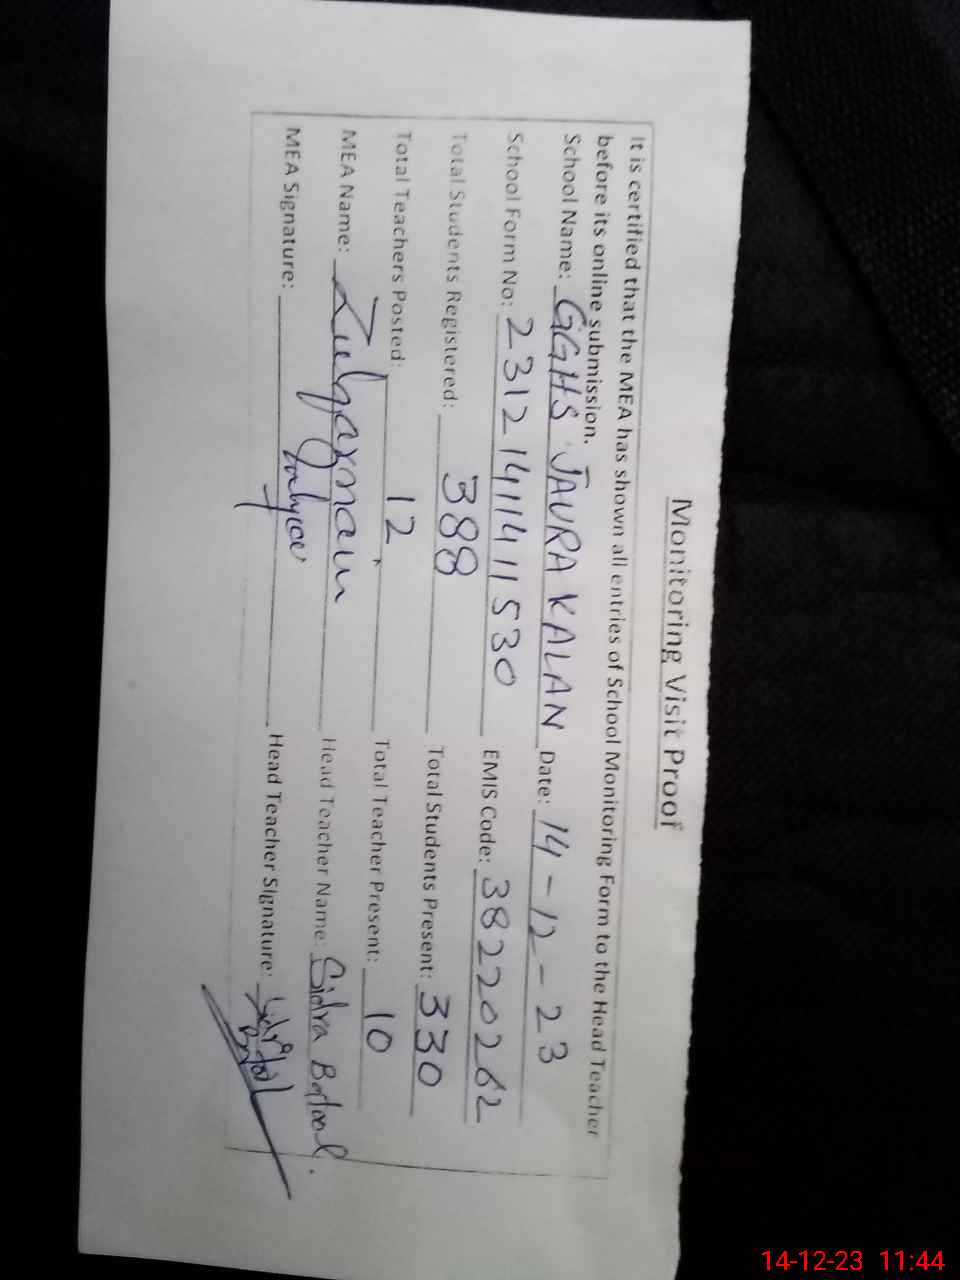 Monitoring Visit Proof
It is certified that the MEA has shown all entries of School Monitoring Form to the Head Teacher
before its online submission.
School Name: GGHS JAURA KALAN Date: 14-12-23
School Form No: 23121411411530 EMIS Code: 38220262
Total Students Registered: 388 Total Students Present: 330
Total Teachers Posted: 12 Total Teacher Present: 10
MEA Name: Zulqarnain Head Teacher Name: Sidra Batool.
MEA Signature: Head Teacher Signature:
14-12-23 11:44